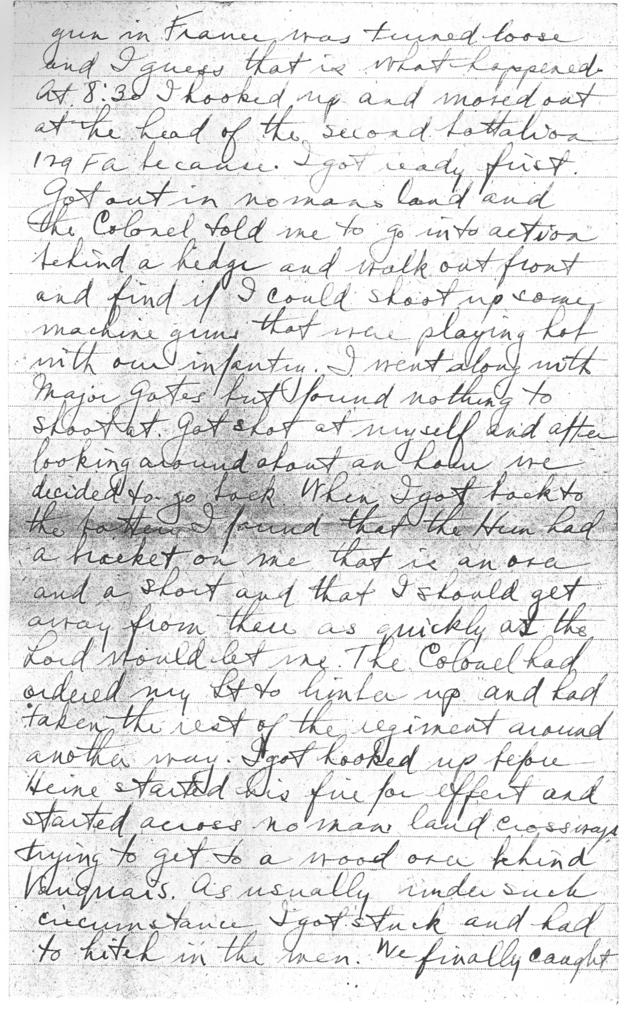 gun in France was turned loose
and I guess that is what happened.
At 8:30 I hooked up and moved out
at the head of the second battalion
129 FA because I got ready first.
Got out in no mans land and
the Colonel told me to go into action
behind a hedge and walk out front
and find if I could shoot up some
machine guns that were playing hob
with our infantry. I went along with
Major Gates but I found nothing to
shoot at. Got shot at myself and after
looking around about an hour we
decided to go back. When I got back to
the battery I found that the Hun had
a bracket on me that is an over
and a short and that I should get
away from there as quickly as the
Lord would let me. The Colonel had
ordered my Lt to limber up and had
taken the rest of the regiment around
another way. I got hooked up before
Heine started his fire for effect and
started across no mans land crossways
trying to get to a wood over behind
Vauquais. As usually under such
circumstance I got stuck and had
to hitch in the men. We finally caught